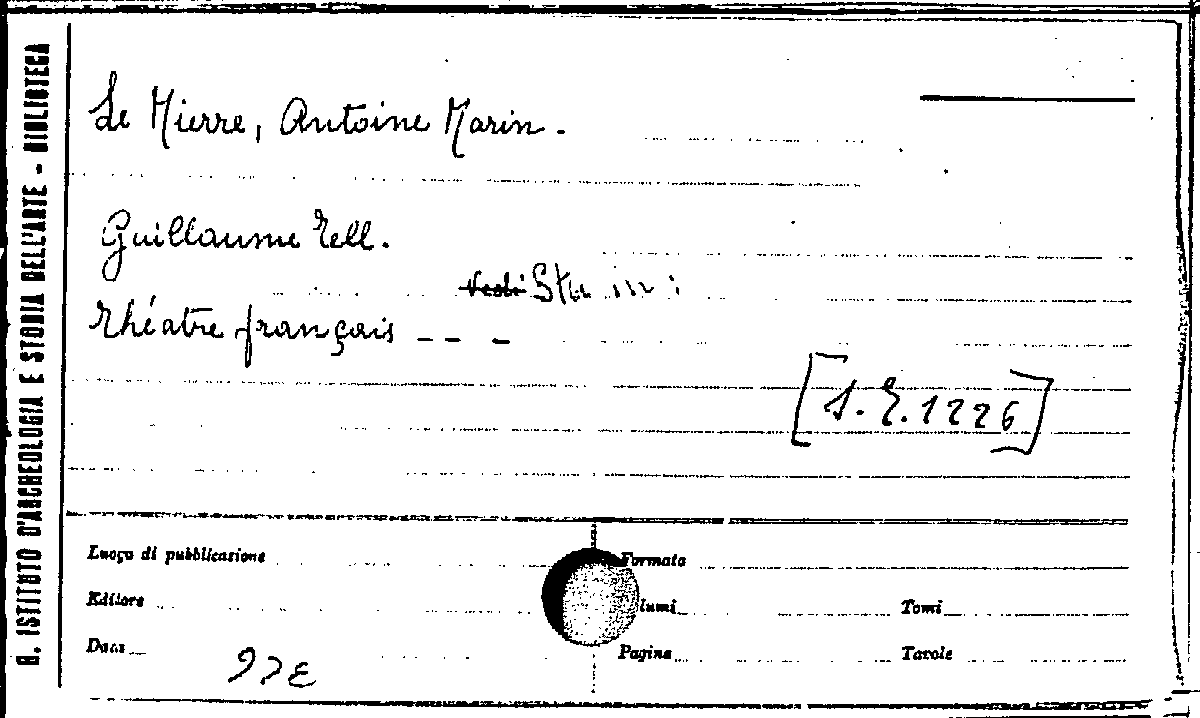 R. ISTITUTO D'ARCHEOLOGIA E STORIA DELL'ARTE - BIBLIOTECA
Le Mierre, Antoine Marin.
Guillaume Tell.
Théatre français - - -
[S. T. 1226]
Luogo di pubblicazione
Formato
Editore
lumi
Tomi
Data
Pagine
Tavole